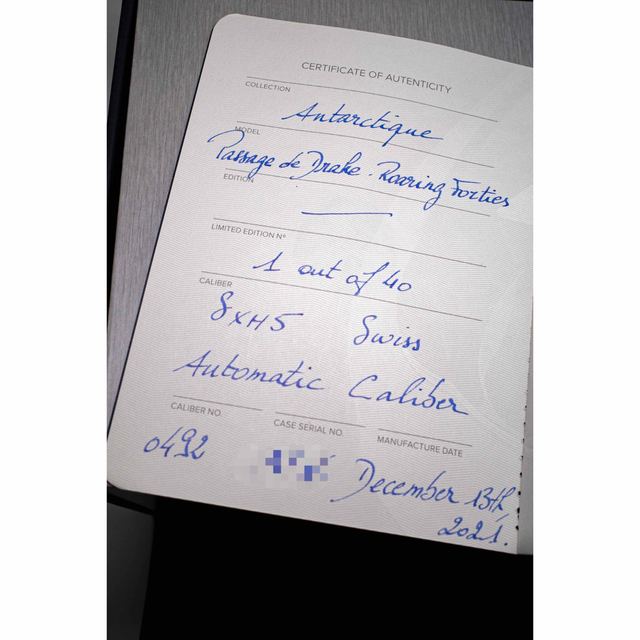 CERTIFICATE OF AUTENTICITY
COLLECTION
Antarctique
MODEL
Passage de Drake - Roaring Forties
EDITION
LIMITED EDITION Nº
1 out of 40
CALIBER
SXH5 Swiss
Automatic Caliber
CALIBER NO.
CASE SERIAL NO.
MANUFACTURE DATE
0492
December 13th,
2021.